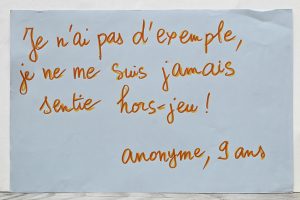 Je n'ai pas d'exemple,
je ne me suis jamais
sentie hors-jeu !
anonyme, 9 ans